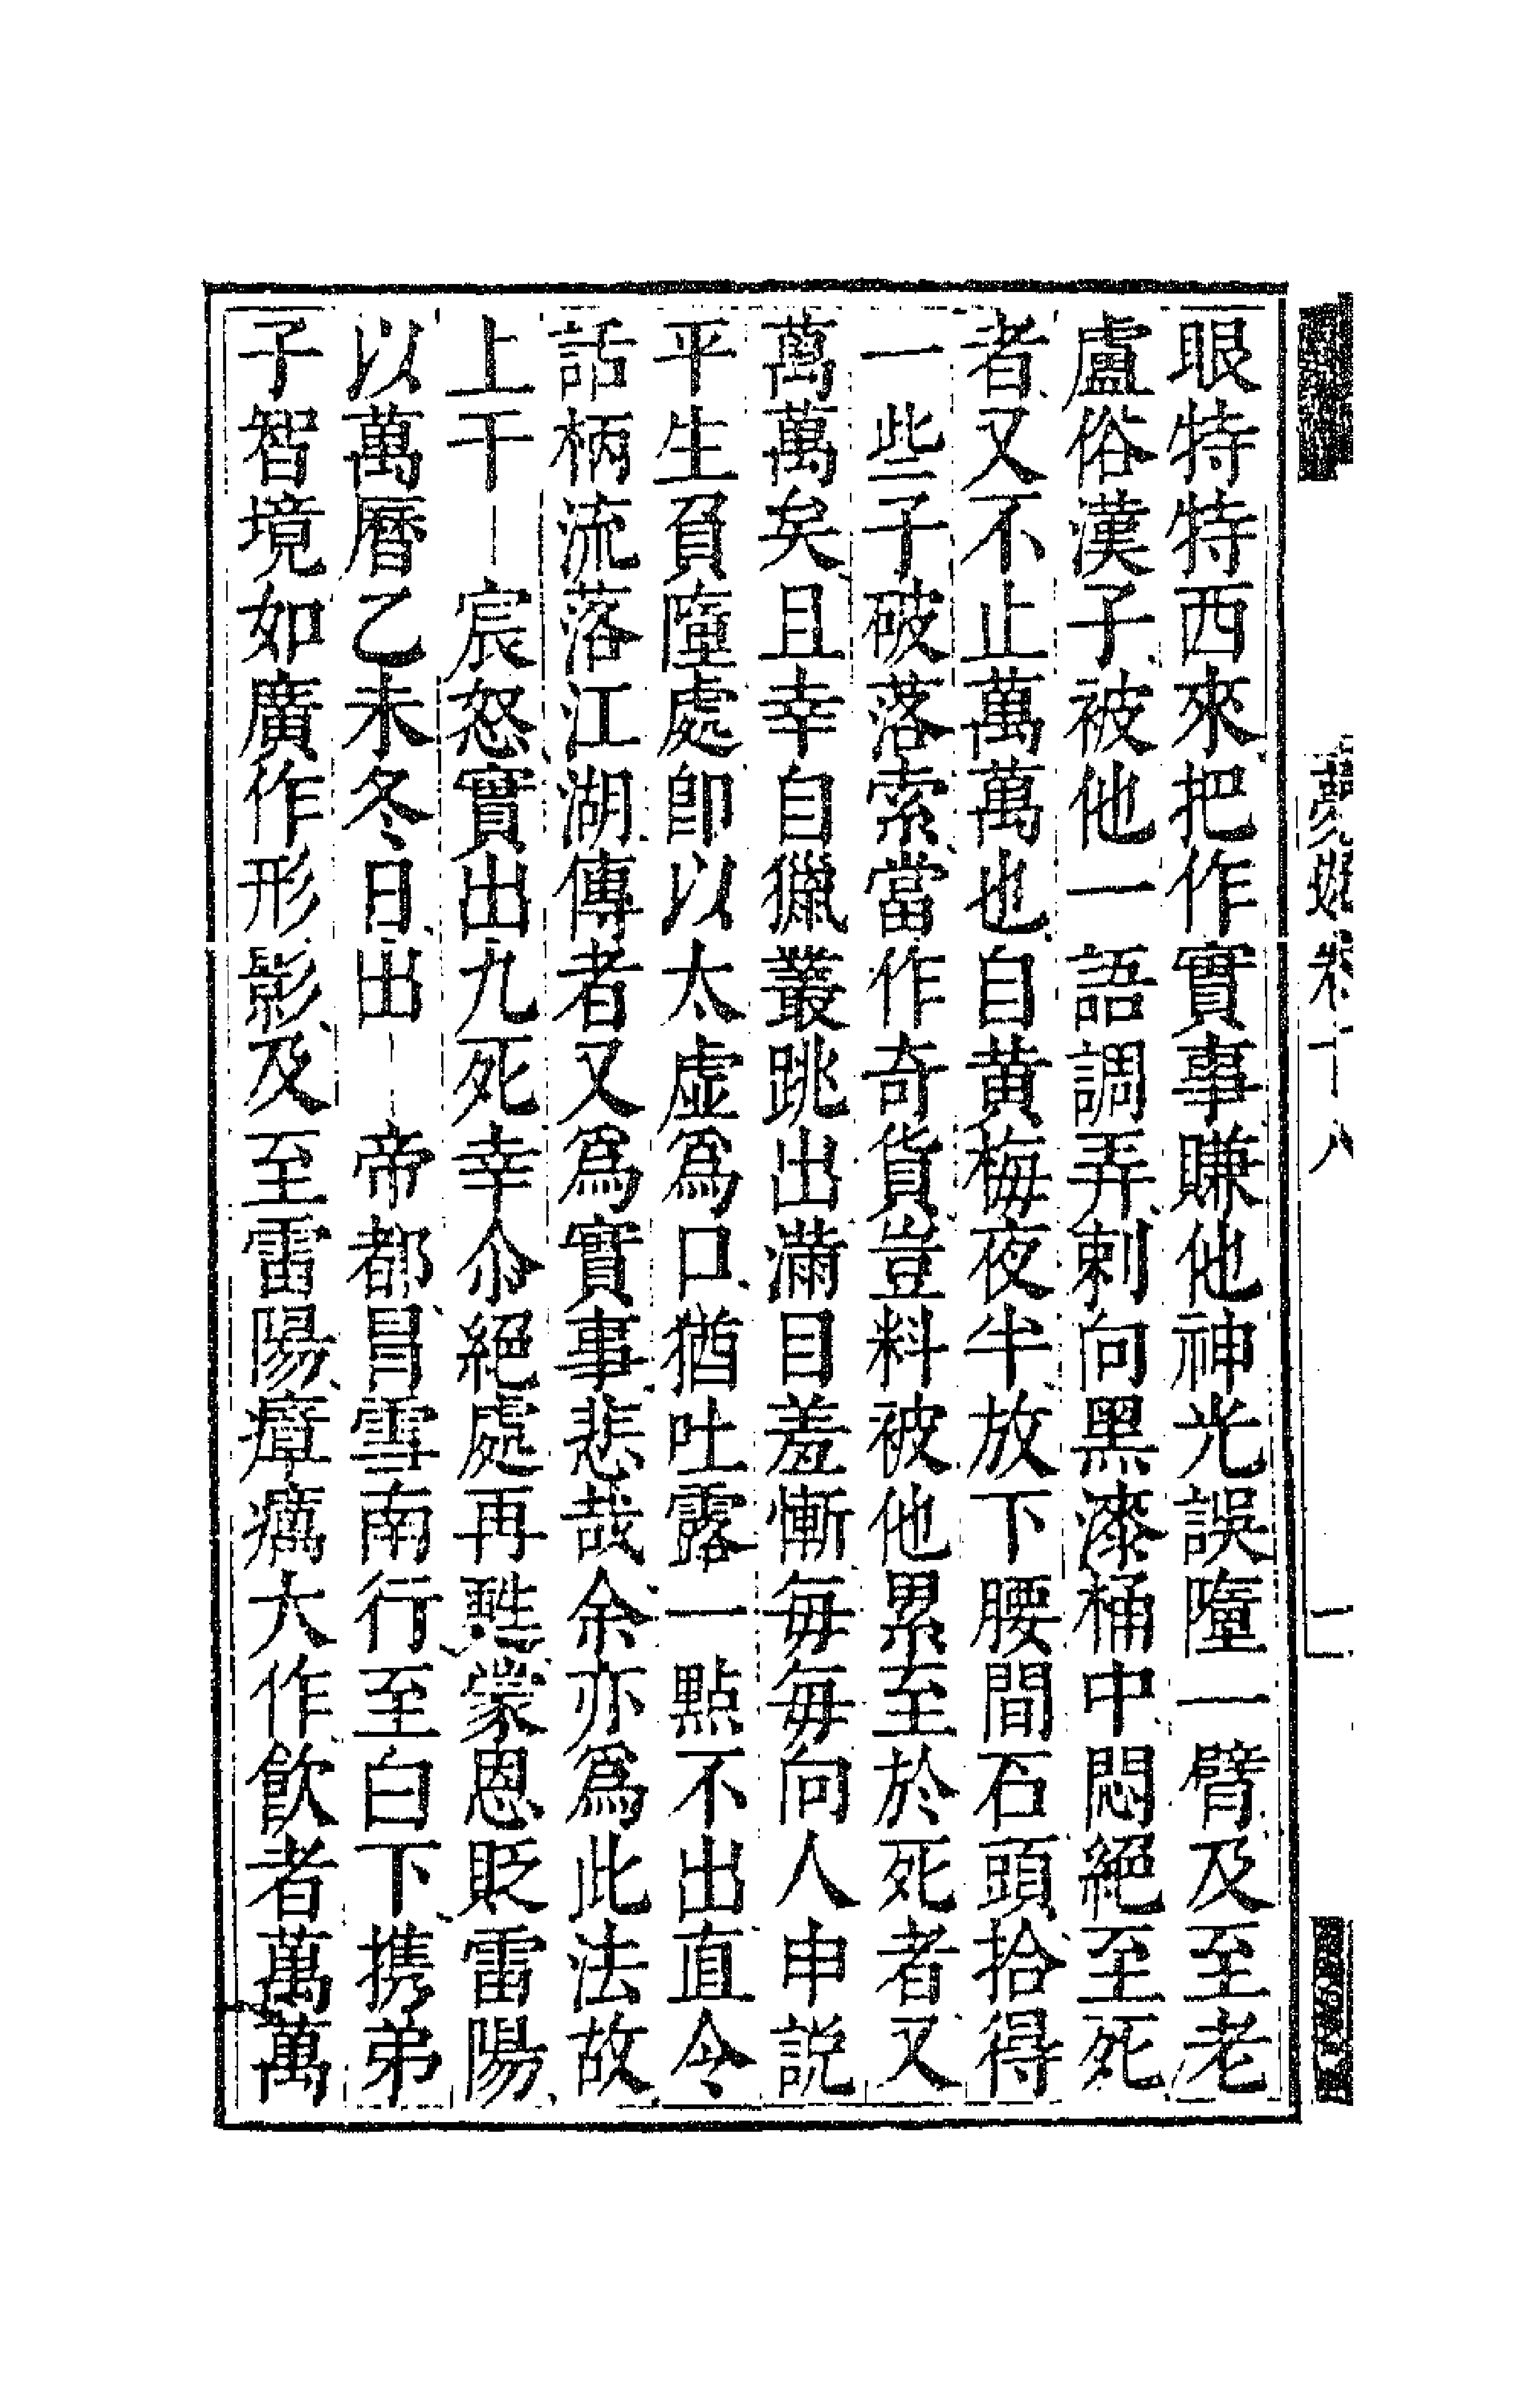 眼特特西來把作實事賺他神光誤墮一臂及至老
盧俗漢子被他一語調弄刺向黑漆桶中悶絕至死
者又不止萬萬也自黃梅夜半放下腰間石頭拾得
一些子破落索當作奇貨豈料被他累至於死者又
萬萬矣且幸自獵叢跳出滿目羞慚每每向人申説
平生負墮處卽以太虛爲口猶吐露一點不出直令
話柄流落江湖傳者又爲實事悲哉余亦爲此法故
上干 宸怒實出九死幸尒絕處再甦蒙恩貶雷陽
以萬曆乙未冬日出 帝都冒雪南行至白下携弟
子智境如廣作形影及至雷陽瘴癘大作飲者萬萬
夢遊卷十八